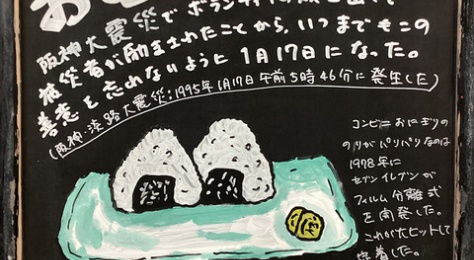 お
阪神大震災でボランティア
被災者が励まされたことから、いつまでもこの
善意を忘れないように1月17日になった。
(阪神・淡路大震災:1995年1月17日午前5時46分に発生した)
コンビニおにぎりの
のりがパリパリなのは
1978年に
セブンイレブンが
フィルム分離式
を開発した。
これが大ヒットして
定着した。